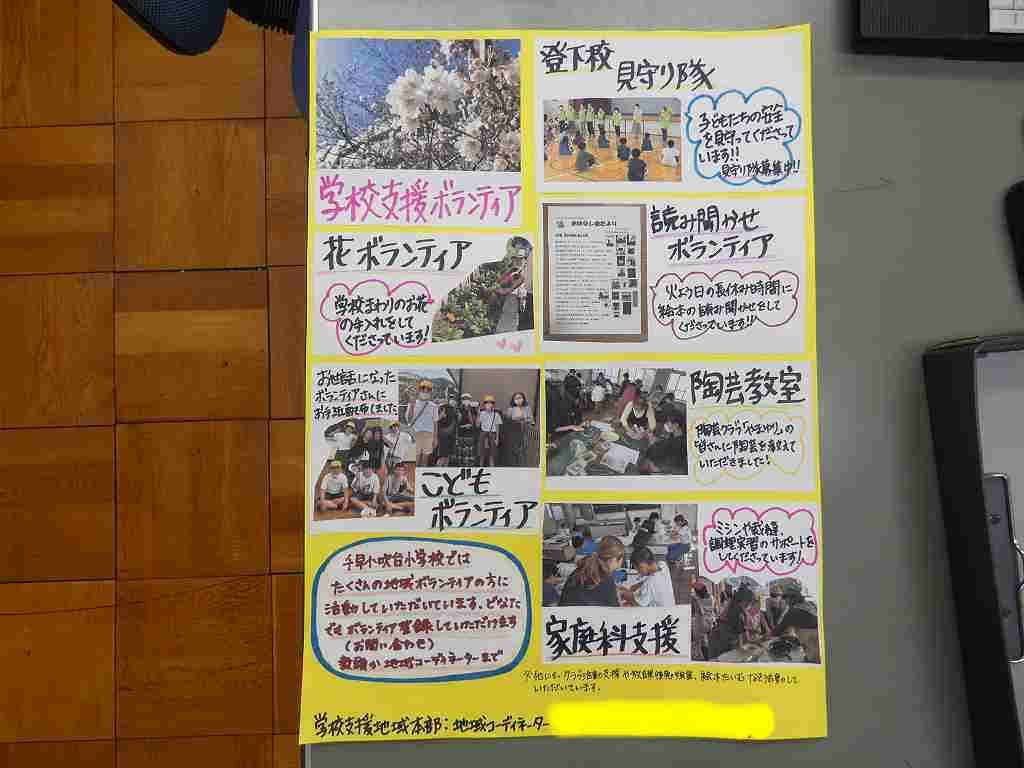 学校支援ボランティア
登下校
見守り隊
子どもたちの安全
を見守ってくださって
います!!
見守り隊募集中!!
花ボランティア
学校まわりのお花
の手入れをして
くださっています!
読み聞かせ
ボランティア
火よう日の長休み時間に
絵本の読み聞かせをして
くださっています!!
お世話になった
ボランティアさんに
お手紙配布しました
こども
ボランティア
陶芸教室
陶芸クラブ「やまゆり」の
皆さんに陶芸を教えて
いただきました!
ミシンや裁縫、
調理実習のサポートを
してくださっています!
家庭科支援
千早小吹台小学校では
たくさんの地域ボランティアの方に
活動していただいています。どなた
でもボランティア登録していただけます
(お問い合わせ)
教頭か地域コーディネーターまで
※他にも、クラブ活動の支援や
いただいています。
学校支援地域本部:地域コーディネーター